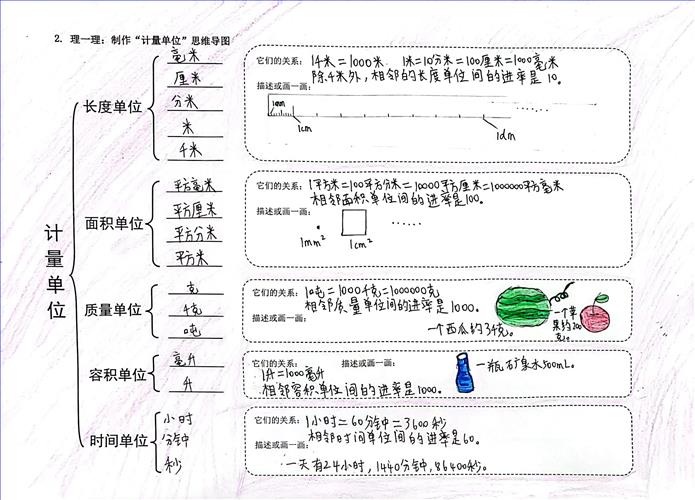 2. 理一理：制作“计量单位”思维导图
计量单位
长度单位
毫米
厘米
分米
米
千米
它们的关系：1千米=1000米 1米=10分米=100厘米=1000毫米
除千米外，相邻的长度单位间的进率是10。
描述或画一画：
1mm
1cm
1dm
面积单位
平方毫米
平方厘米
平方分米
平方米
它们的关系：1平方米=100平方分米=10000平方厘米=1000000平方毫米
相邻面积单位间的进率是100。
描述或画一画：
1mm²
1cm²
......
质量单位
克
千克
吨
它们的关系：1吨=1000千克=1000000克
相邻质量单位间的进率是1000。
描述或画一画：
一个西瓜约3千克。
一个苹
果约200
克。
容积单位
毫升
升
它们的关系： 描述或画一画：
1升=1000毫升
相邻容积单位间的进率是1000。
一瓶矿泉水500mL。
时间单位
小时
分钟
秒
它们的关系：1小时=60分钟=3600秒
相邻时间单位间的进率是60。
描述或画一画：
一天有24小时，1440分钟，86400秒。